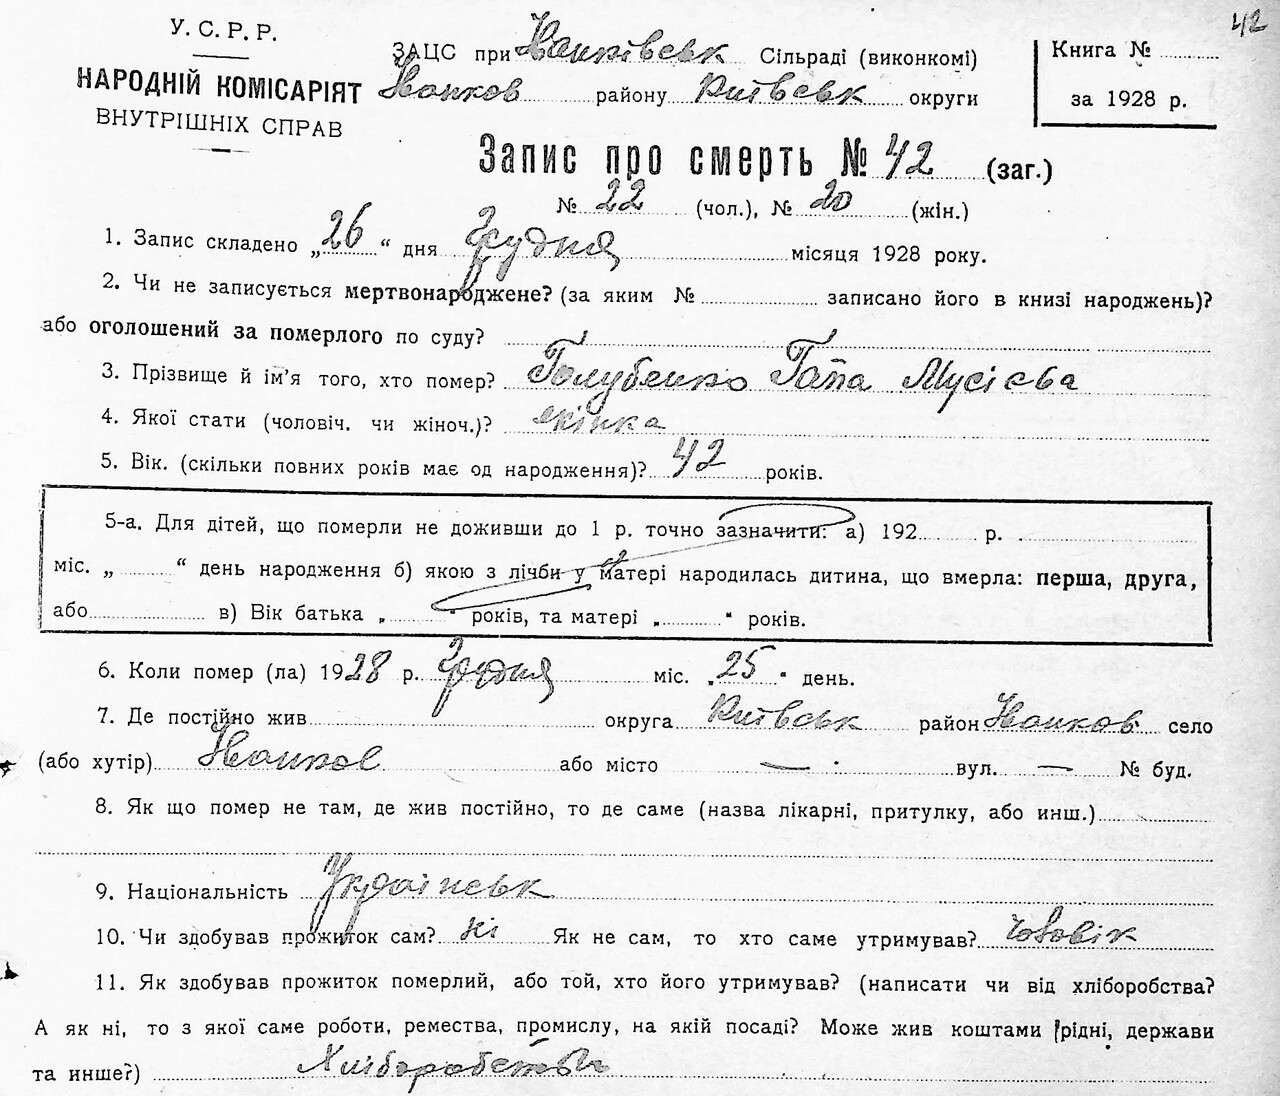 42
У. С. Р. Р.
НАРОДНІЙ КОМІСАРІЯТ
ВНУТРІШНІХ СПРАВ
ЗАЦС при Іванківськ Сільраді (виконкомі)
Іванков району Київськ округи
Книга №
за 1928 р.
Запис про смерть № 42 (заг.)
№ 22 (чол.), № 20 (жін.)
1. Запис складено „26“ дня Грудня місяця 1928 року.
2. Чи не записується мертвонароджене? (за яким № записано його в книзі народжень)?
або оголошений за померлого по суду?
3. Прізвище й ім'я того, хто помер? Голубенко Гапа Мусієва
4. Якої стати (чоловіч. чи жіноч.)? жінка
5. Вік. (скільки повних років має од народження)? 42 років.
5-а. Для дітей, що померли не доживши до 1 р. точно зазначити: а) 192 р.
міс. „ “ день народження б) якою з лічби у матері народилась дитина, що вмерла: перша, друга,
або в) Вік батька „ “ років, та матері „ “ років.
6. Коли помер (ла) 1928 р. Грудня міс. „25“ день.
7. Де постійно жив округа Київськ район Іванков село
(або хутір) Іванков або місто — вул. — № буд.
8. Як що помер не там, де жив постійно, то де саме (назва лікарні, притулку, або инш.)
9. Національність Українськ
10. Чи здобував прожиток сам? ні Як не сам, то хто саме утримував? Чоловік
11. Як здобував прожиток померлий, або той, хто його утримував? (написати чи від хліборобства?
А як ні, то з якої саме роботи, ремества, промислу, на якій посаді? Може жив коштами (рідні, держави
та инше?) Хліборобство